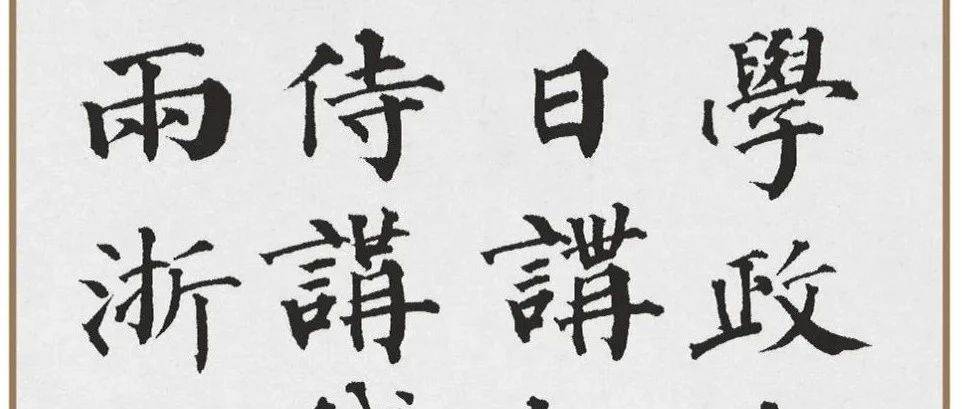 學政
日講
侍講
兩浙